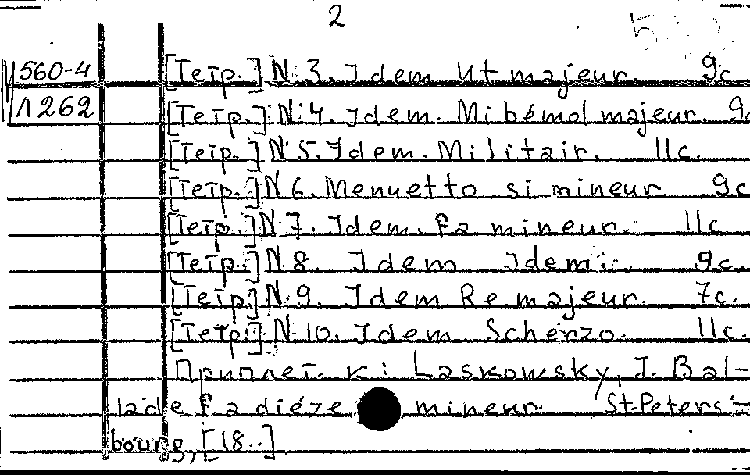 2
560-4 [Тетр.] N 3. Idem Ut majeur. 9с.
1262 [Тетр.] N. 4. Idem. Mi bémol majeur. 9с
[Тетр.] N 5. Idem. Militair. 11с.
[Тетр.] N 6. Menuetto si mineur 9с
[Тетр.] N 7. Idem. fa mineur. 11с
[Тетр.] N 8. Idem Idem. 9с.
[Тетр.] N 9. Idem Re majeur. 7с.
[Тетр.] N 10. Idem Scherzo. 11с.
Приплет. к: Laskowsky, J. Bal-
lade fa dièze mineur St.Peters-
bourg, [18..]